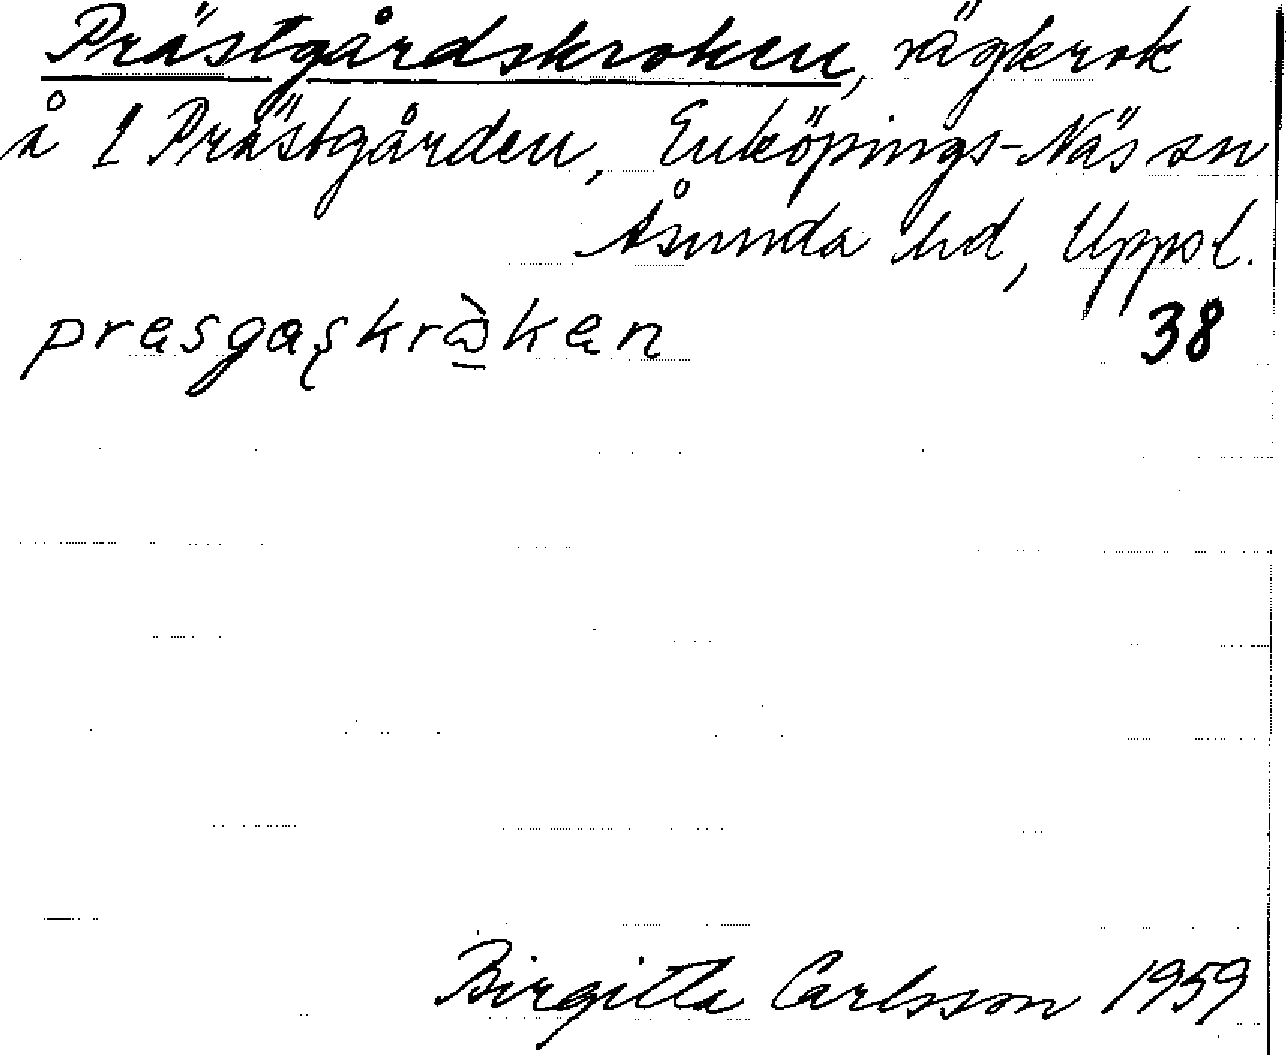 Prästgårdskroken, vägkrok
å 1 Prästgården, Enköpings-Näs sn
Åsunda hd, Uppsl.
38
Birgitta Carlsson 1959